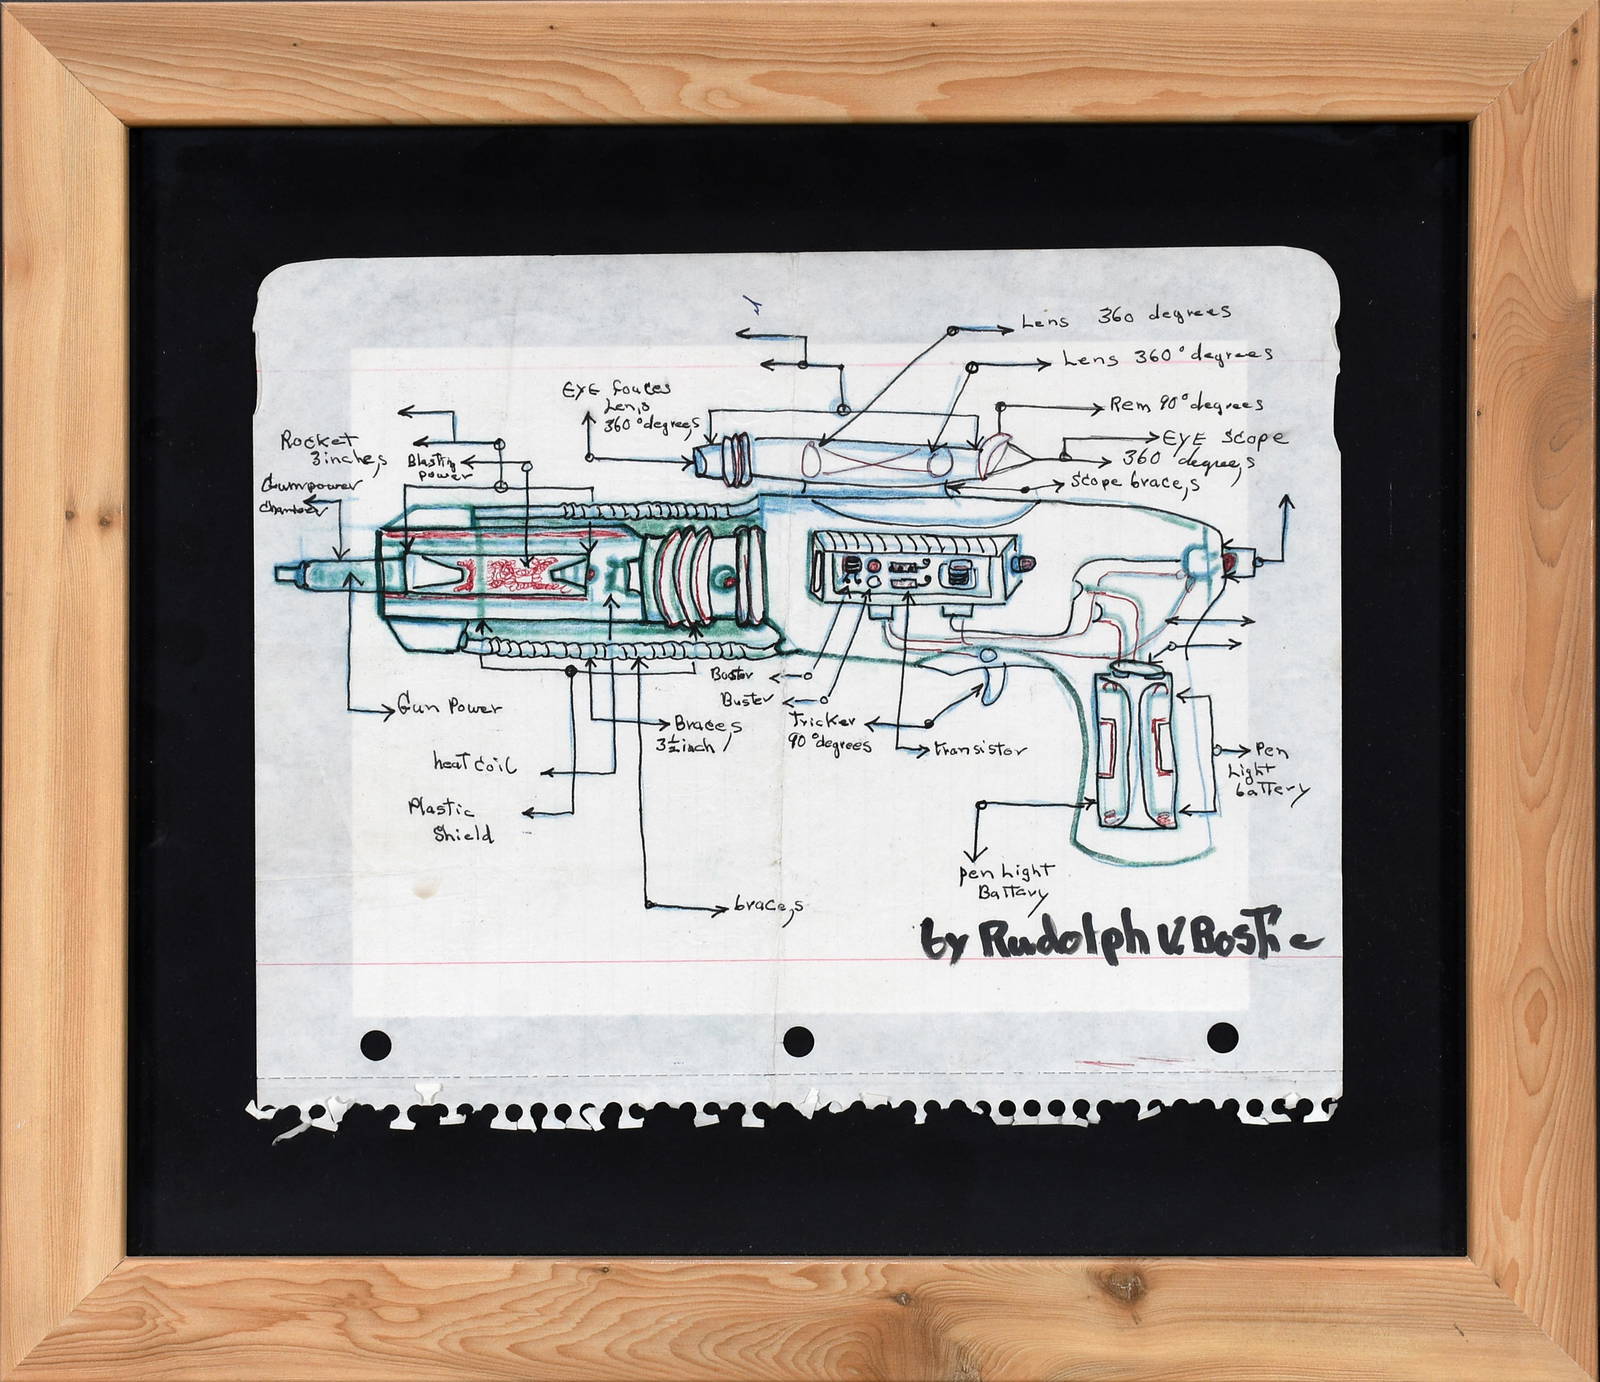 Lens 360 degrees
Lens 360° degrees
EYE fouces
Len,s
360° degree,s
Rem 90° degrees
EYE Scope
360 degree,s
Scope brace,s
Rocket
3 inche,s
Blasting
power
Gumpower
chamber
Gun Power
Booster
Buster
Brace,s
3½ inch
Tricker
90° degrees
transistor
heat coil
Plastic
Shield
Pen
Light
battery
Pen Light
Battary
brace,s
by Rudolph V Bostic